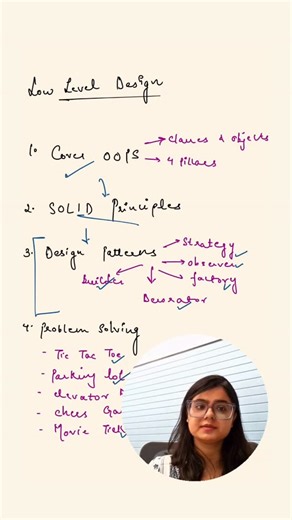 Low Level Design
1. Cover OOPS → classes & objects
→ 4 pillars
2. SOLID Principles
3. Design Patterns → Strategy
→ observer
→ factory
Builder
Decorator
4. Problem Solving
- Tic Tac Toe
- Parking lot
- elevator
- chess
- Movie